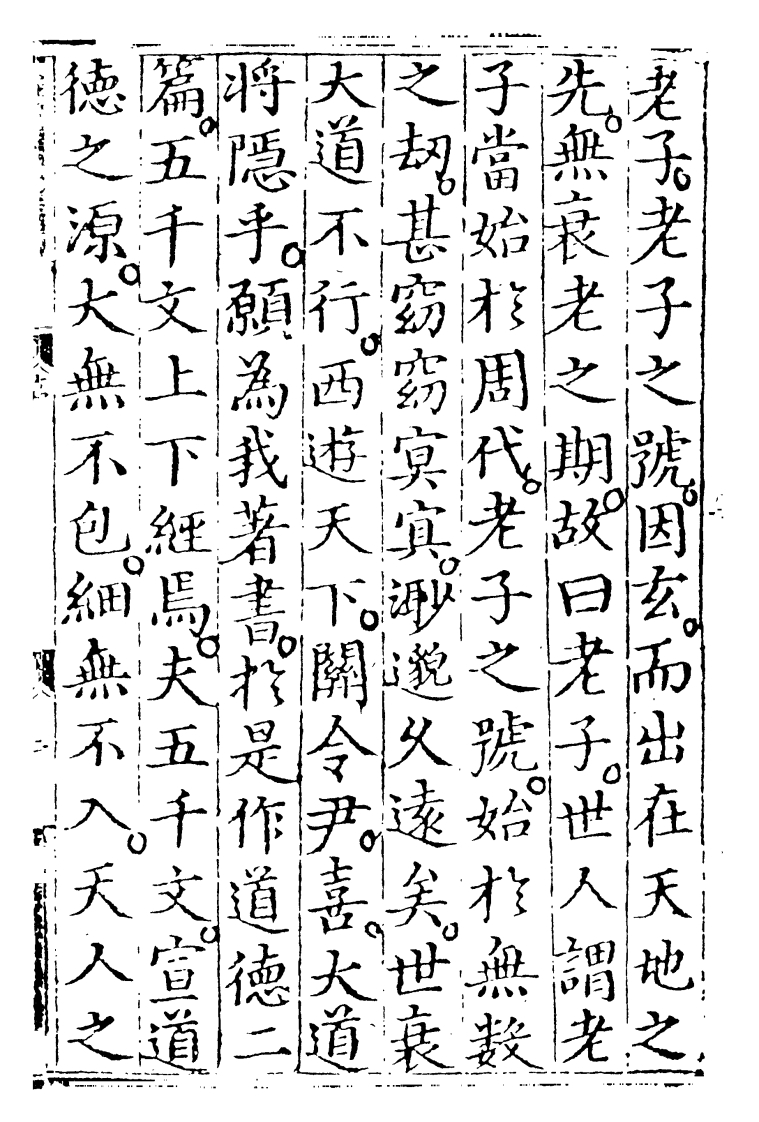 老子。老子之號。因玄。而出在天地之
先。無衰老之期。故曰老子。世人謂老
子當始於周代。老子之號。始於無數
之刼。甚窈窈㝠㝠。渺邈久遠矣。世衰
大道不行。西遊天下。關令尹。喜。大道
将隠乎。願為我著書。於是作道德二
篇。五千文上下經焉。夫五千文。宣道
德之源。大無不包。細無不入。天人之